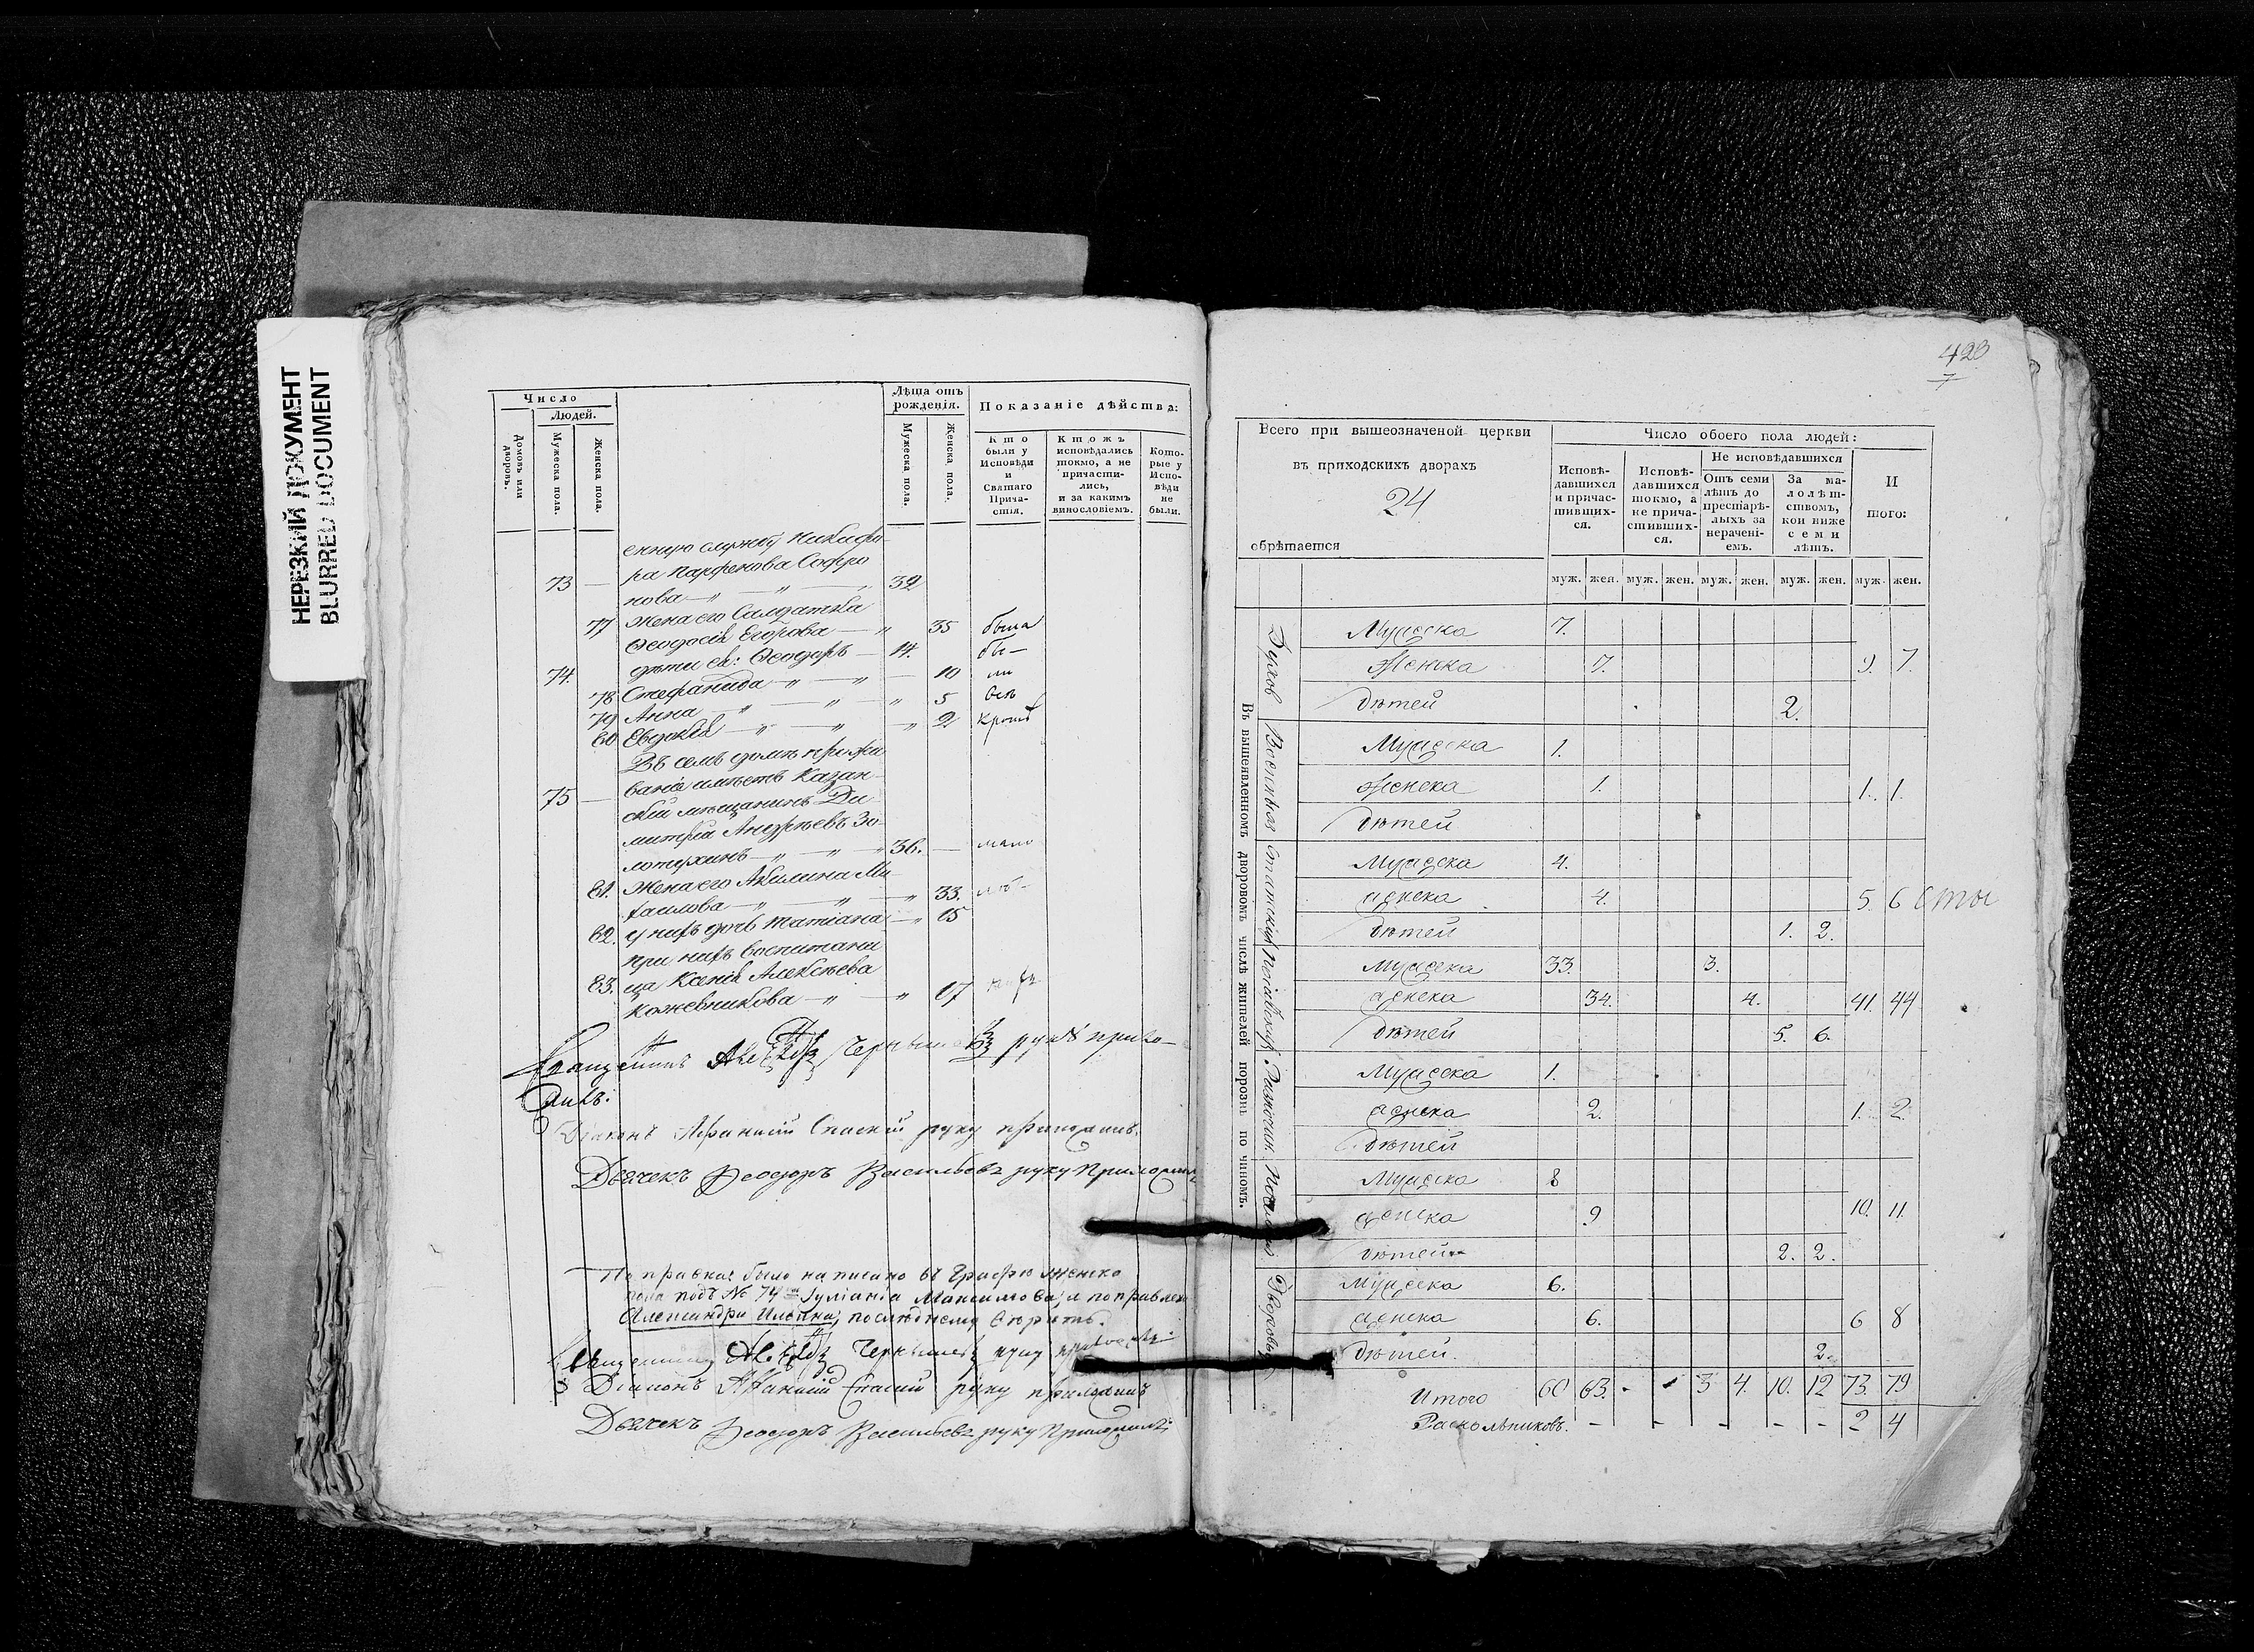 НЕРЕЗКИЙ ДОКУМЕНТ
BLURRED DOCUMENT
Число
Людей.
Домовъ или дворовъ.
Мужеска пола.
Женска пола.
Лѣта отъ рожденія.
Мужеска пола.
Женска пола.
Показаніе дѣйства:
Кто были у Исповѣди и Святаго Причастія.
Ктожъ исповѣдались токмо, а не причастились, и за какимъ винословіемъ.
Которые у Исповѣди не были.
енную службу Никифо
73 — ра Парфенова Софро
нова — „ — „ — „ 32
77 Жена его Салдатка
Ѳеодосія Егорова — „ 35 была
74. дѣти ея: Ѳеодоръ — 14. бы—
78 Стефанида — „ — „ — 10 ли
79 Анна — „ — „ — „ 5 всѣ
80 Евдокія — „ — „ „ 2 кромѣ
Въ семъ домѣ прожи
75 — ваніе имѣетъ Казан
скій мѣщанинъ Ди
митрій Андрѣевъ Зо
лотухинъ — „ — „ — „ 36. — мало
81. Жена его Акилина Ми
хаилова — „ — „ — „ 33. лѣт—
82. у нихъ дочь Татіана — „ 15
при нихъ воспитани
83. ца Ксенія Алексѣева
Кожевникова — „ — „ 17
Священникъ Алеѯѣй Черныше руку прило—
жилъ:
Діаконъ Афанасій Спаскій руку приложилъ.
Дьячекъ Ѳеодоръ Васильевъ руку приложилъ
По правкѣ было написано въ графѣ женска
пола подъ № 74 м Іуліанія Максимова, и поправлена
Александра Ильина, послѣднему вѣрить.
Священникъ Алеѯѣй Чернышевъ руку приложилъ.
Діаконъ Афанасій Спаский руку приложилъ
Дьячекъ Ѳеодоръ Васильевъ руку приложилъ
423
7
Всего при вышеозначеной церкви
въ приходскихъ дворахъ
24
обрѣтается
Число обоего пола людей:
Исповѣдавшихся и причастившихся.
Исповѣдавшихся токмо, а не причастившихся.
Не исповѣдавшихся
Отъ семи лѣтъ до престарѣлыхъ за нераченіемъ.
За малолѣтствомъ, кои ниже семи лѣтъ.
И того:
муж. жен. муж. жен. муж. жен. муж. жен. муж. жен.
Въ вышеявленномъ дворовомъ числѣ жителей порознь по чиномъ.
Духов
Мужеска 7.
Женска 7. 9. 7.
Дѣтей 2.
Военныя
Мужеска 1.
Женска 1. 1. 1.
Дѣтей
Статскія
Мужеска 4.
женска 4. 5. 6 сты
Дѣтей 1. 2.
Посадскихъ
мужеска 33. 3.
женска 34. 4. 41. 44
Дѣтей 5. 6.
Разночин.
Мужеска 1.
женска 2. 1. 2.
Дѣтей
Мужеска 8
женска 9 10. 11.
Дѣтей 2. 2.
Дворовых
мужеска 6.
женска 6. 6 8
Дѣтей. 2.
Итого 60 63. - - 3 4. 10. 12 73. 79
Раскольниковъ. - - - - - 2 4